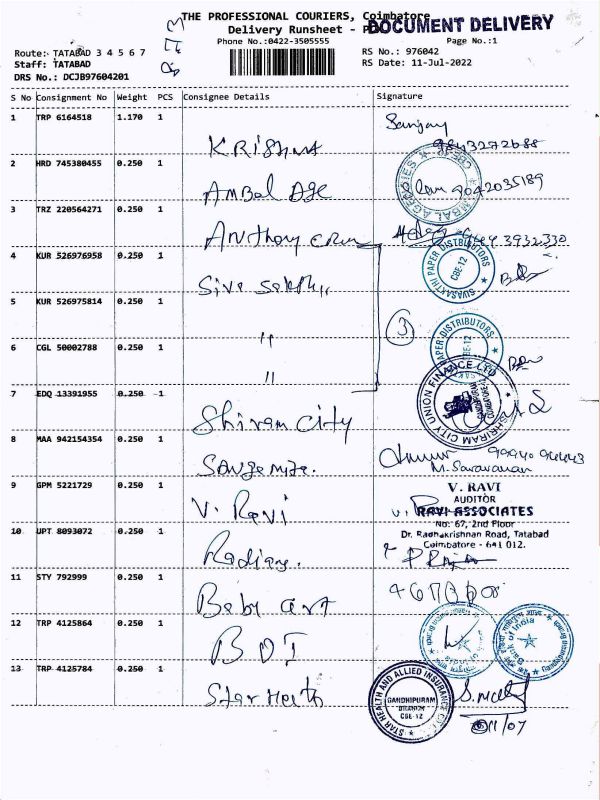 THE PROFESSIONAL COURIERS, Coimbatore
Delivery Runsheet -
DOCUMENT DELIVERY
Phone No.:0422-3505555
Page No.:1
Route: TATABAD 3 4 5 6 7
RS No.: 976042
Staff: TATABAD
RS Date: 11-Jul-2022
DRS No.: DCJB97604201
S No Consignment No Weight PCS Consignee Details Signature
1 TRP 6164518 1.170 1 Krishna Sanjay
2 HRD 745380455 0.250 1 Ambal Age 9042035189
AMBAL AGENCIES
3 TRZ 220564271 0.250 1 Anthony
4 KUR 526976958 0.250 1 Siva Sakthi
SIVASAKTHI PAPER DISTRIBUTORS
CBE-12
5 KUR 526975814 0.250 1 " 3
PAPER DISTRIBUTORS
CBE-12
6 CGL 50002788 0.250 1 "
7 EDQ 13391955 0.250 1 Shiram City
SHRIRAM CITY UNION FINANCE LTD
8 MAA 942154354 0.250 1
M. Saravanan
9 GPM 5221729 0.250 1 V. Ravi
V. RAVI
AUDITOR
RAVI ASSOCIATES
No: 67, 2nd Floor
Dr. Radhakrishnan Road, Tatabad
Coimbatore - 641 012.
10 UPT 8093072 0.250 1
11 STY 792999 0.250 1 Baby art
12 TRP 4125864 0.250 1 BOI
Bank of India
13 TRP 4125784 0.250 1 Star Health
STAR HEALTH AND ALLIED INSURANCE CO
GANDHIPURAM
BRANCH
CBE-12
11/07